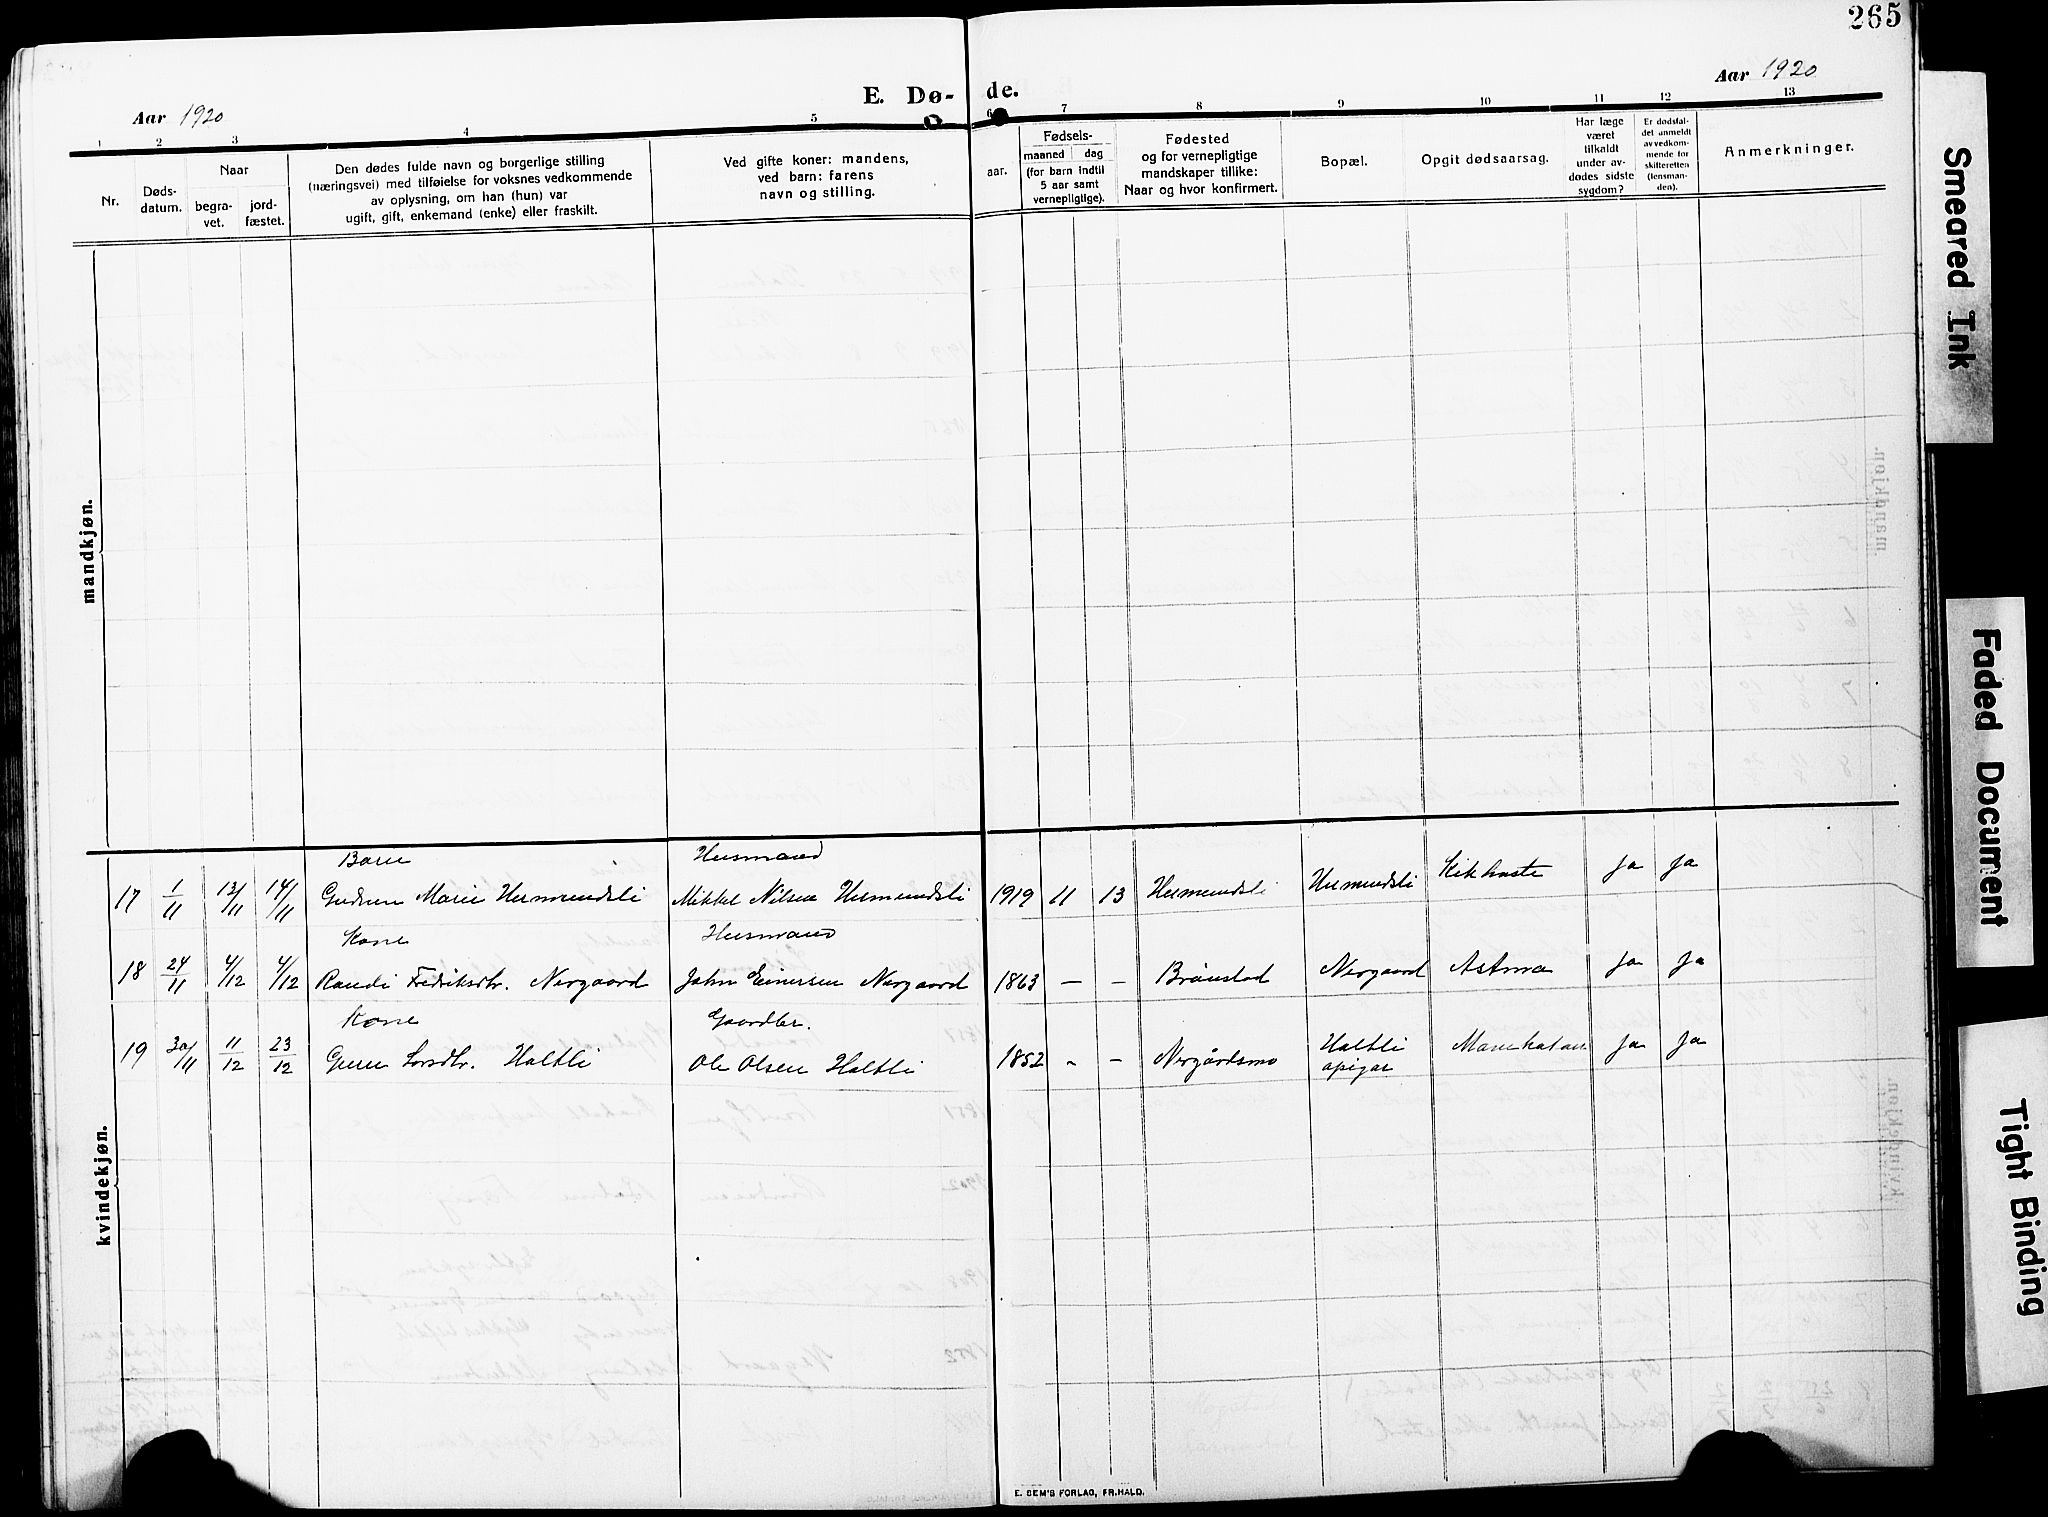 265
Aar 1920
E. Dø-
de.
Aar 1920
1 2 3 4 5 6 7 8 9 10 11 12 13
Nr.
Døds-
datum.
Naar
begra-
vet.
jord-
fæstet.
Den dødes fulde navn og borgerlige stilling
(næringsvei) med tilføielse for voksnes vedkommende
av oplysning, om han (hun) var
ugift, gift, enkemand (enke) eller fraskilt.
Ved gifte koner: mandens,
ved barn: farens
navn og stilling.
aar.
Fødsels-
maaned dag
(for barn indtil
5 aar samt
vernepligtige).
Fødested
og for vernepligtige
mandskaper tillike:
Naar og hvor konfirmert.
Bopæl.
Opgit dødsaarsag.
Har læge
været
tilkaldt
under av-
dødes sidste
sygdom?
Er dødsfal-
det anmeldt
av vedkom-
mende for
skifteretten
(lensman-
den).
Anmerkninger.
mandkjøn.
kvindekjøn.
Barn Husmand
17 1/11 13/11 14/11 Gudrun Marie Hermundsli Mikkel Nilsen Hermundsli 1919 11 13 Hermundsli Hermundsli Kikhoste Ja Ja
Kone Husmand
18 24/11 4/12 4/12 Randi Fredriksdtr. Nergaard John Einersen Nergaard 1863 – – Brønstad Nergaard Astma Ja Ja
Kone Gaardbr.
19 30/11 11/12 23/12 Guru Larsdtr. Haltli Ole Olsen Haltli 1852 – – Nergårdsmo Haltli Ja Ja
E. SEM'S FORLAG, FR.HALD.
Smeared Ink
Faded Document
Tight Binding